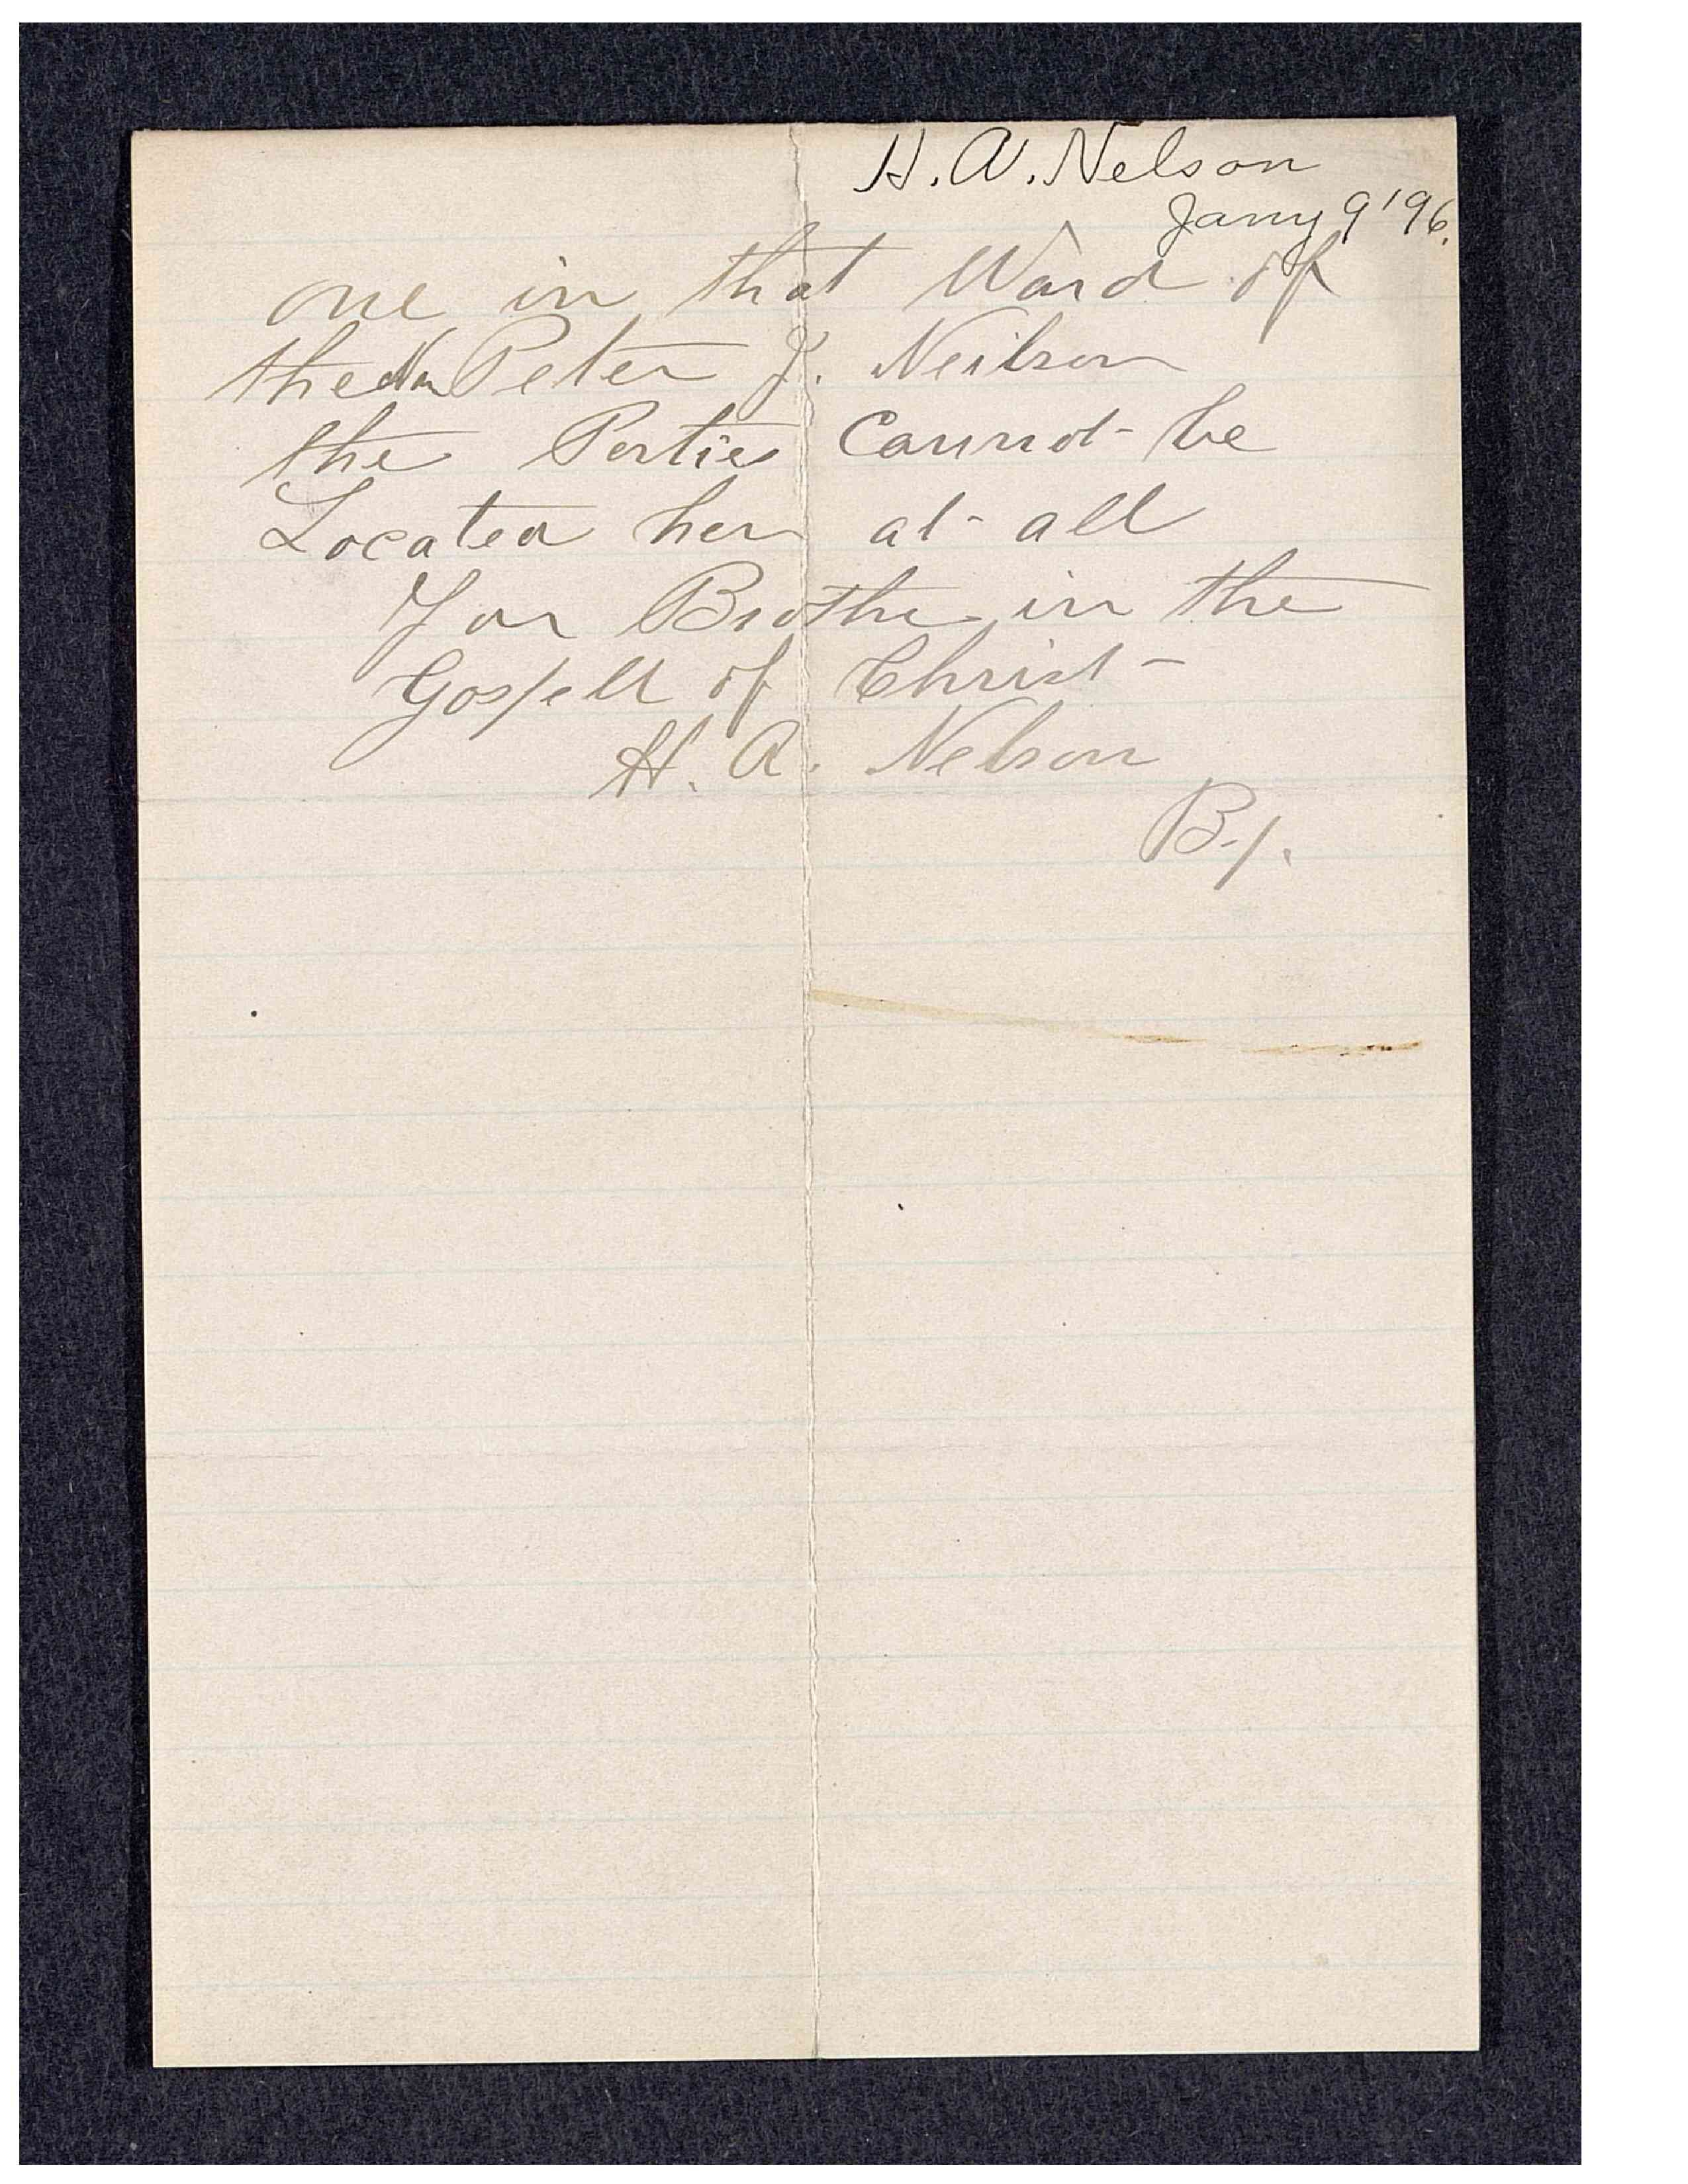 H. A. Nelson
Jany 9 '96.
one in that Ward of
the Nm Peter J. Neilson
the Parties Cannot be
Located her at all
Your Brothe in the
Gospell of Christ
H. A. Nelson
Bp.